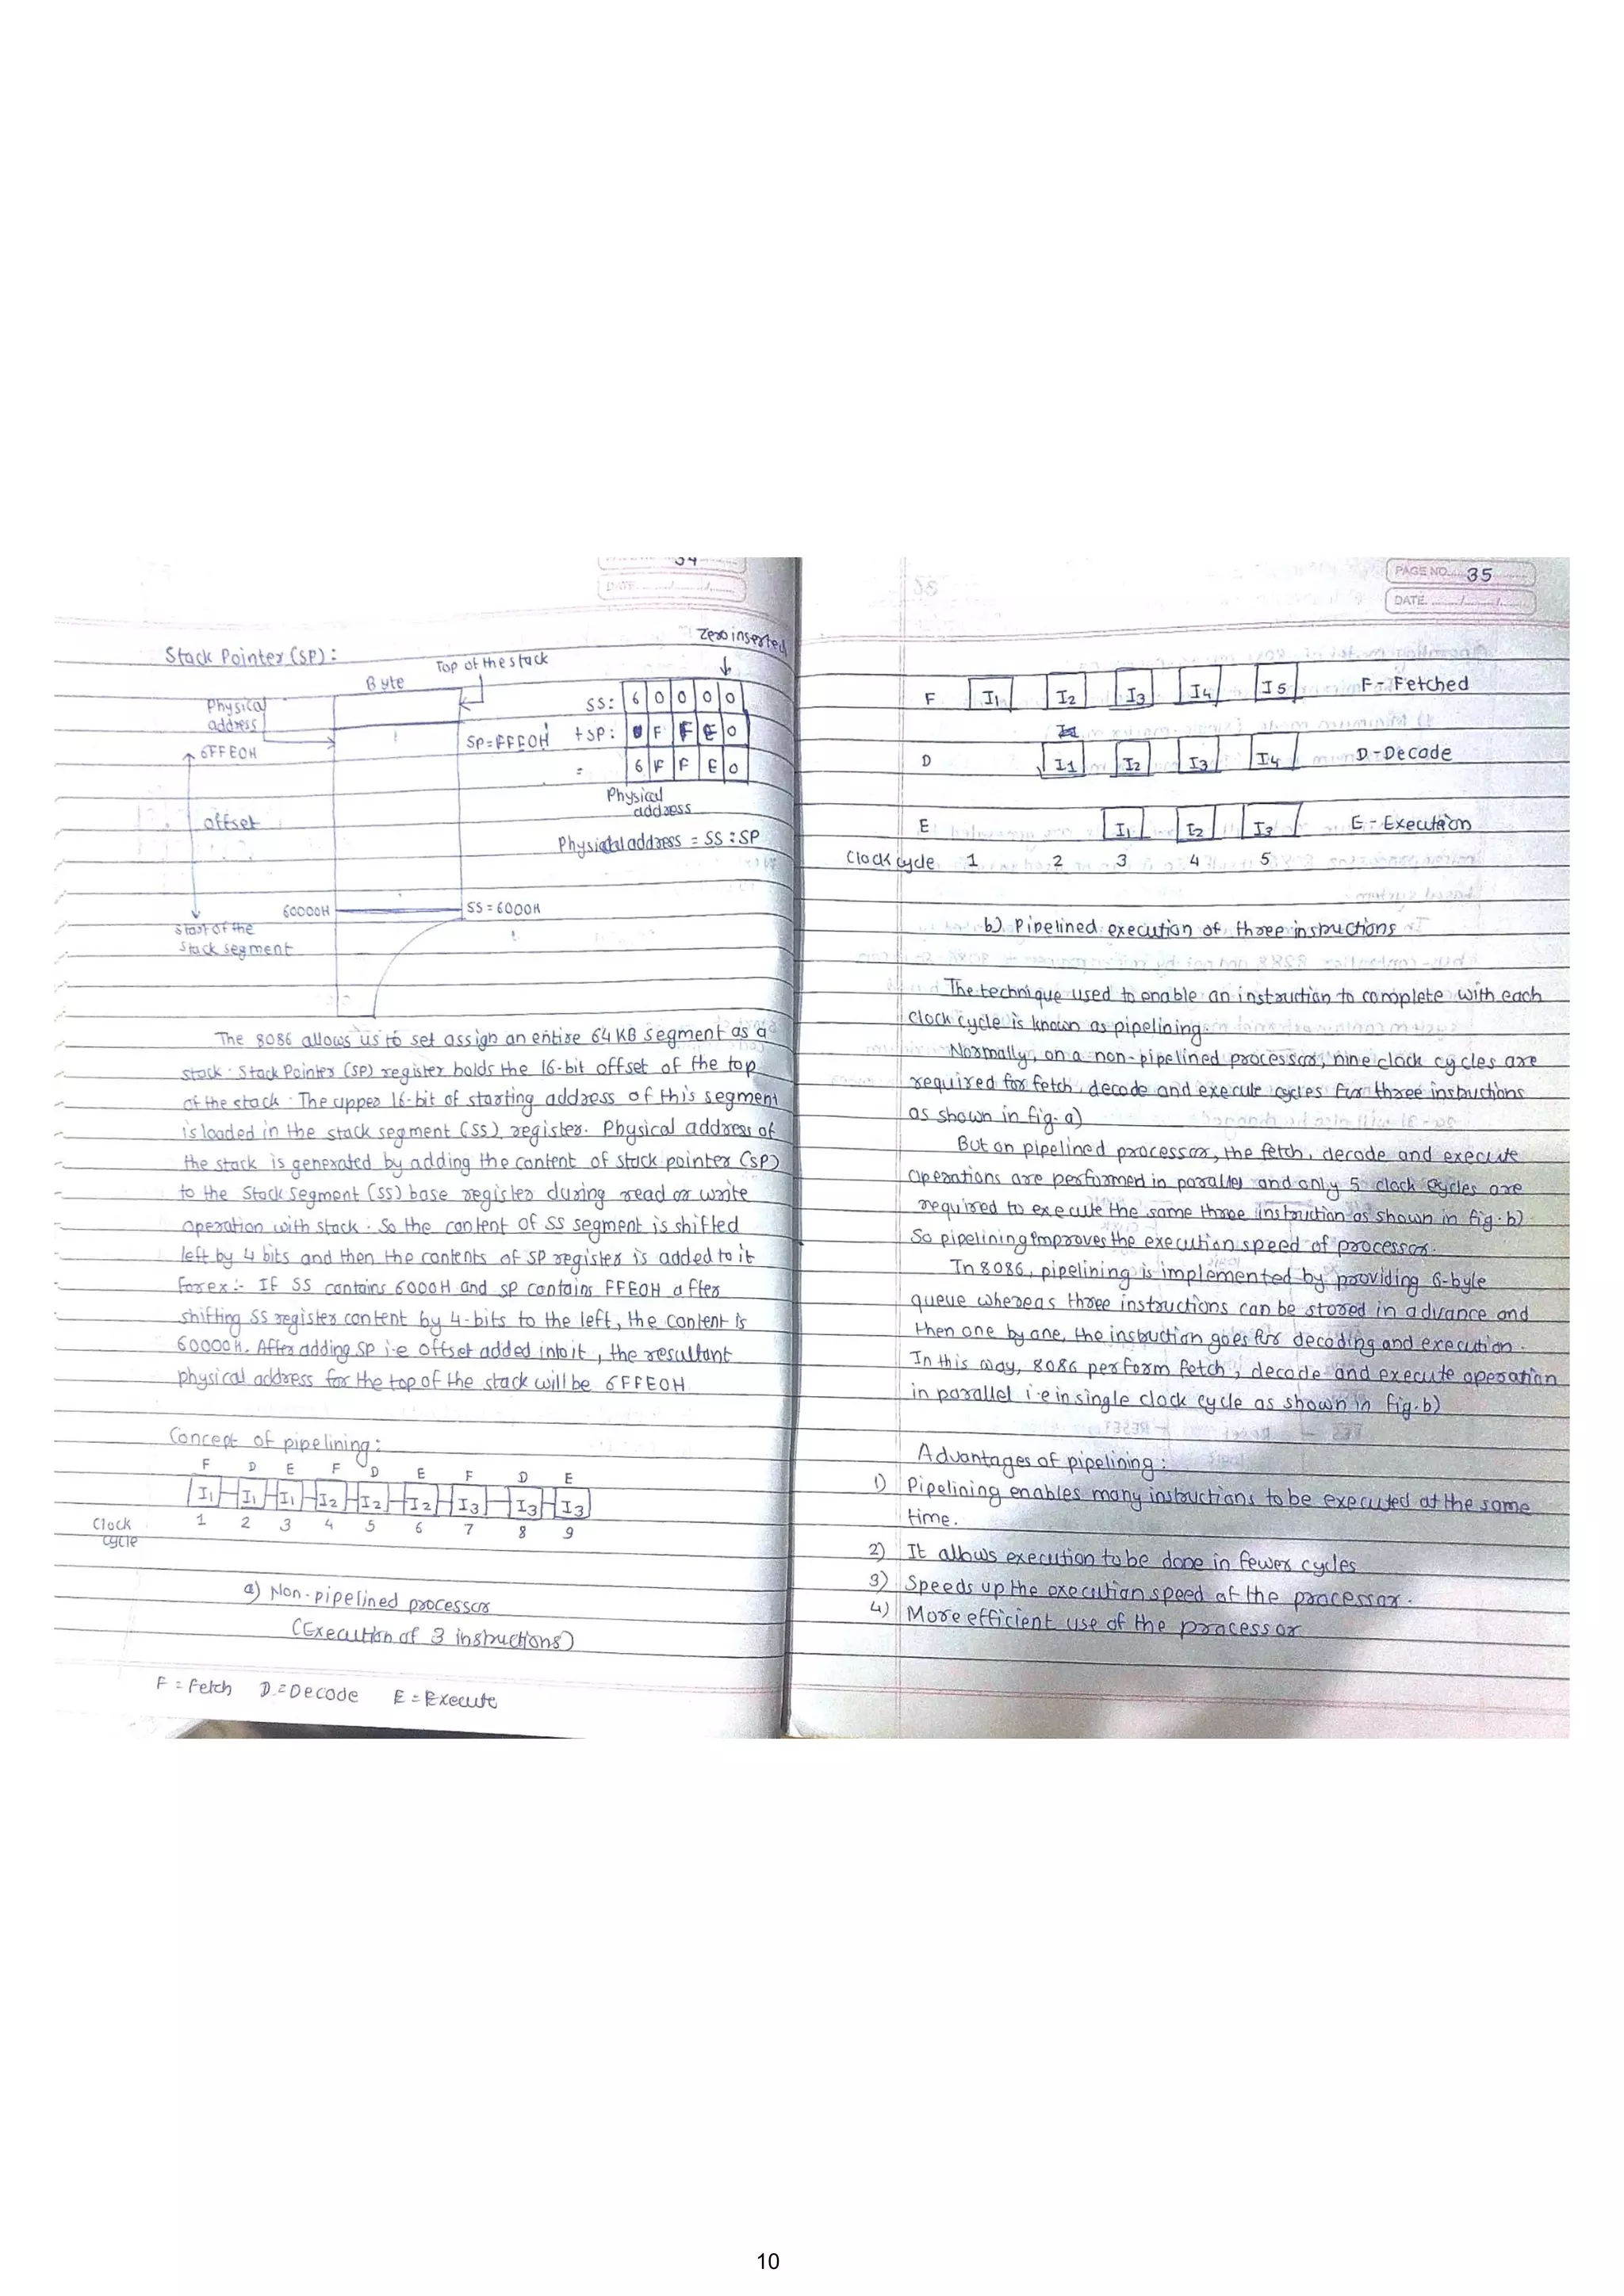 34
DATE
Stack Pointer (SP) :
Zero inserted
Top of the stack
Byte
Physical
address
SS: 6 0 0 0 0
6FFEOH
SP=FFEOH
+SP: 0 F F E 0
= 6 F F E 0
Physical
address
offset
Physical address = SS : SP
60000H
SS = 6000H
start of the
stack segment
The 8086 allows us to set assign an entire 64 KB segment as a
stack. Stack Pointer (SP) register holds the 16-bit offset of the top
of the stack. The upper 16-bit of starting address of this segment
is loaded in the stack segment (SS) register. Physical address of
the stack is generated by adding the content of stack pointer (SP)
to the Stack Segment (SS) base register during read or write
operation with stack. So the content of SS segment is shifted
left by 4 bits and then the contents of SP register is added to it
for ex :- If SS contains 6000H and SP contains FFEOH after
shifting SS register content by 4-bits to the left, the content is
60000H. After adding SP i.e offset added into it, the resultant
physical address for the top of the stack will be 6FFEOH
Concept of pipelining :
F D E F D E F D E
I1 I1 I1 I2 I2 I2 I3 I3 I3
Clock
cycle
1 2 3 4 5 6 7 8 9
a) Non-pipelined processor
(Execution of 3 instructions)
F = Fetch D = Decode E = Execute
PAGE NO. 35
DATE
F I1 I2 I3 I4 I5 F - Fetched
D I1 I2 I3 I4 D - Decode
E I1 I2 I3 E - Execution
Clock cycle 1 2 3 4 5
b) Pipelined execution of three instructions
The technique used to enable an instruction to complete with each
clock cycle is known as pipelining.
Normally, on a non-pipelined processor, nine clock cycles are
required for fetch, decode and execute cycles for three instructions
as shown in fig. a)
But on pipelined processor, the fetch, decode and execute
operations are performed in parallel and only 5 clock cycles are
required to execute the same three instruction as shown in fig. b)
So pipelining improves the execution speed of processor.
In 8086, pipelining is implemented by providing 6-byte
queue whereas three instructions can be stored in advance and
then one by one, the instruction goes for decoding and execution.
In this way, 8086 perform fetch, decode and execute operation
in parallel i.e in single clock cycle as shown in fig. b)
Advantages of pipelining :
1) Pipelining enables many instructions to be executed at the same
time.
2) It allows execution to be done in fewer cycles
3) Speeds up the execution speed of the processor.
4) More efficient use of the processor
10